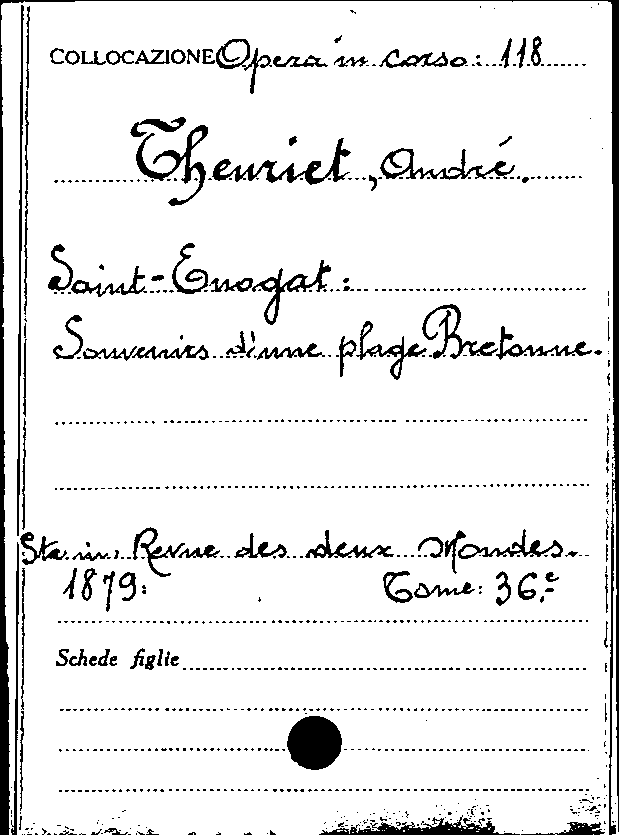 COLLOCAZIONE Opera in corso: 118
Theuriet, André.
Saint-Enogat:
Souvenirs d'une plage Bretonne.
Sta in: Revue des deux Mondes.
1879: Tome: 36.e
Schede figlie